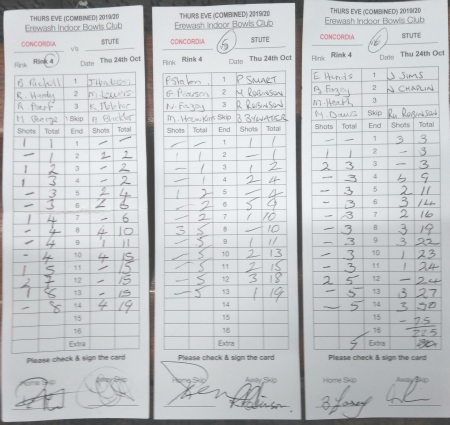 THURS EVE (COMBINED) 2019/20
Erewash Indoor Bowls Club
CONCORDIA vs STUTE
Rink Rink 4 Date Thu 24th Oct
1
R. Hardy 2 M
3
M. George Skip
Shots Total End Shots Total
1 1 1 - -
- 1 2 2 2
1 2 3 - 2
1 3 4 - 2
- 3 5 2 4
- 3 6 2 6
1 4 7 - 6
- 4 8 4 10
- 4 9 1 11
- 4 10 4 15
1 5 11 - 15
2 7 12 - 15
1 8 13 - 15
- 8 14 4 19
15
16
Extra
Please check & sign the card
Home Skip Away Skip
THURS EVE (COMBINED) 2019/20
Erewash Indoor Bowls Club
CONCORDIA 5 STUTE
Rink Rink 4 Date Thu 24th Oct
1 P SMART
2 M ROBINSON
N. Fazey 3 R ROBINSON
Skip B BYWATER
Shots Total End Shots Total
- - 1 1 1
1 1 2 - 1
- 1 3 1 2
- 1 4 2 4
1 2 5 - 4
- 2 6 5 9
- 2 7 1 10
3 5 8 - 10
- 5 9 1 11
- 5 10 2 13
- 5 11 2 15
- 5 12 3 18
- 5 13 1 19
14
15
16
Extra
Please check & sign the card
Home Skip Away Skip
THURS EVE (COMBINED) 2019/20
Erewash Indoor Bowls Club
CONCORDIA STUTE
Rink Rink 4 Date Thu 24th Oct
1 J SIMS
B Fazey 2 N CHAPLIN
M. Heath 3
M. Davis Skip ROBINSON
Shots Total End Shots Total
- - 1 3 3
1 1 2 - 3
2 3 3 - 3
- 3 4 6 9
- 3 5 2 11
- 3 6 3 14
- 3 7 2 16
- 3 8 3 19
- 3 9 3 22
- 3 10 1 23
- 3 11 1 24
2 5 12 - 24
- 5 13 3 27
- 5 14 3 30
15
16
5 Extra
Please check & sign the card
Home Skip Away Skip
B Fazey